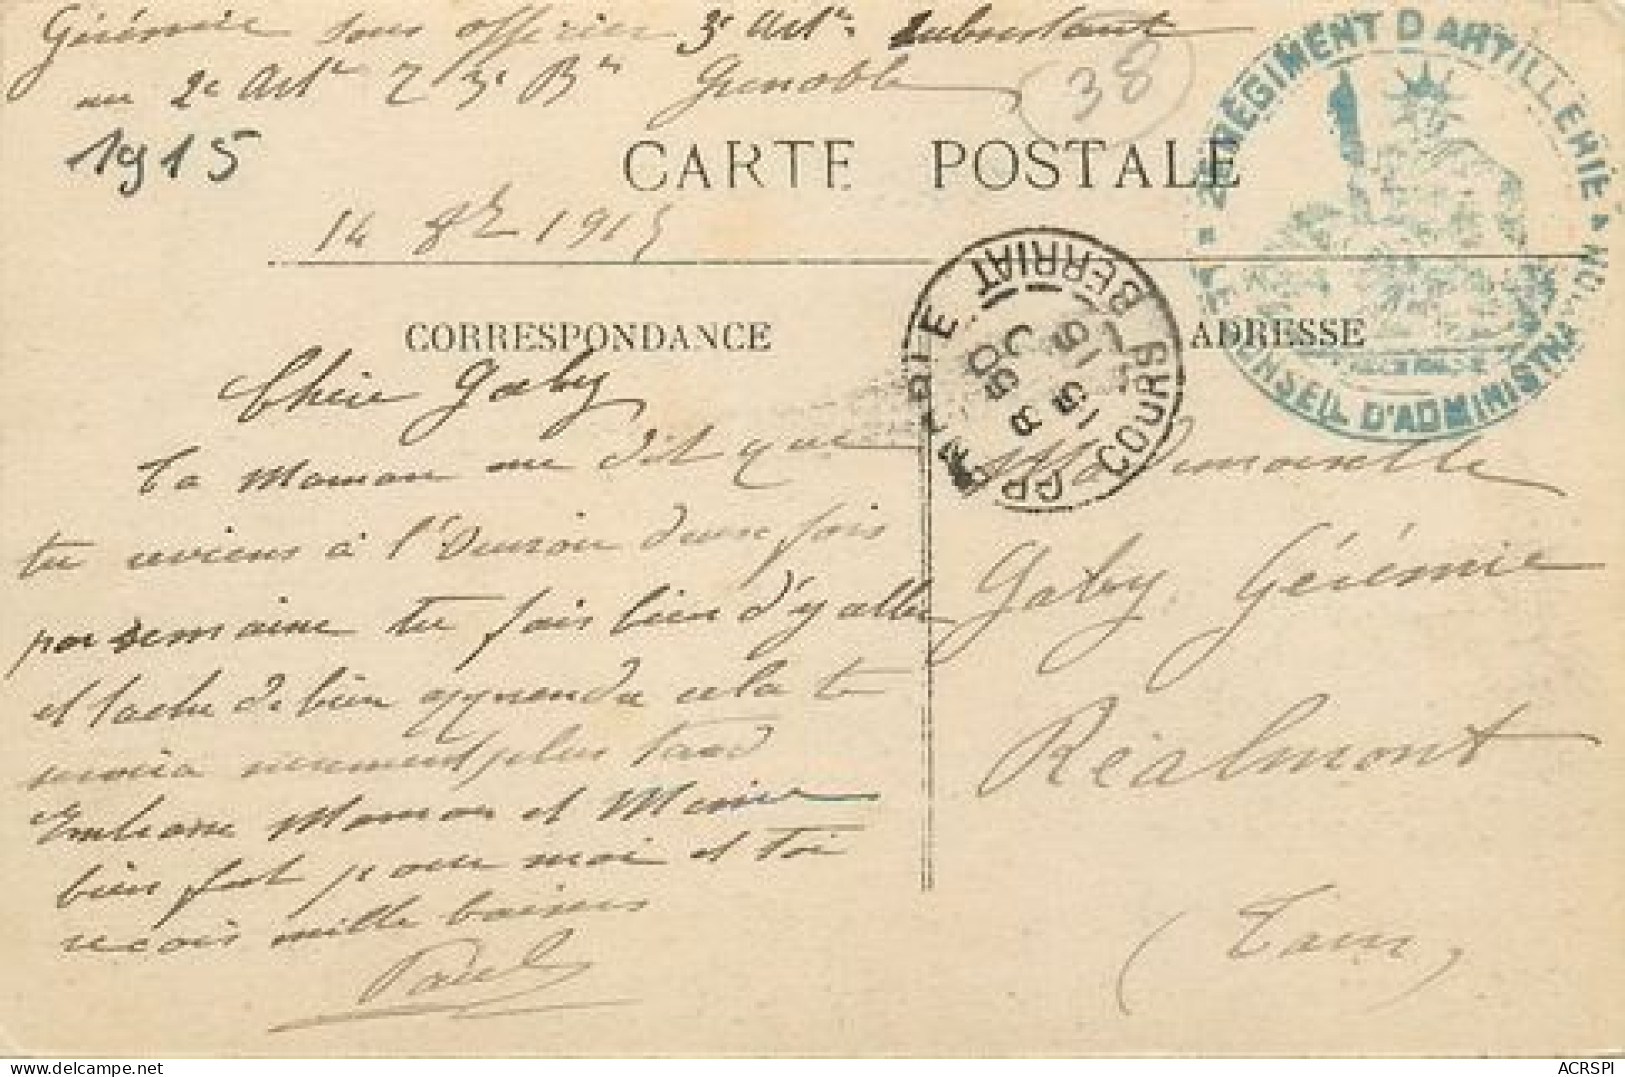 Gérémie sous officier 3e Artie subsistant
au 2e Artie 73e Bie Grenoble
38
1915
CARTE POSTALE
2E REGIMENT D'ARTILLERIE
CONSEIL D'ADMINISTRATION
14 8bre 1915
CORRESPONDANCE
ADRESSE
GRENOBLE
COURS BERRIAT
15 15
Chère Gaby
Ta Maman me dit que
tu reviens à l'Ouvroir deux fois
par semaine tu fais bien d'y aller
et tache de bien apprendre cela te
servira surement plus tard
Embrasse Maman et Mimie
bien fort pour moi et toi
reçois mille baisers
Paul
Mademoiselle
Gaby Gérémie
Réalmont
(Tarn)
ACRSPI